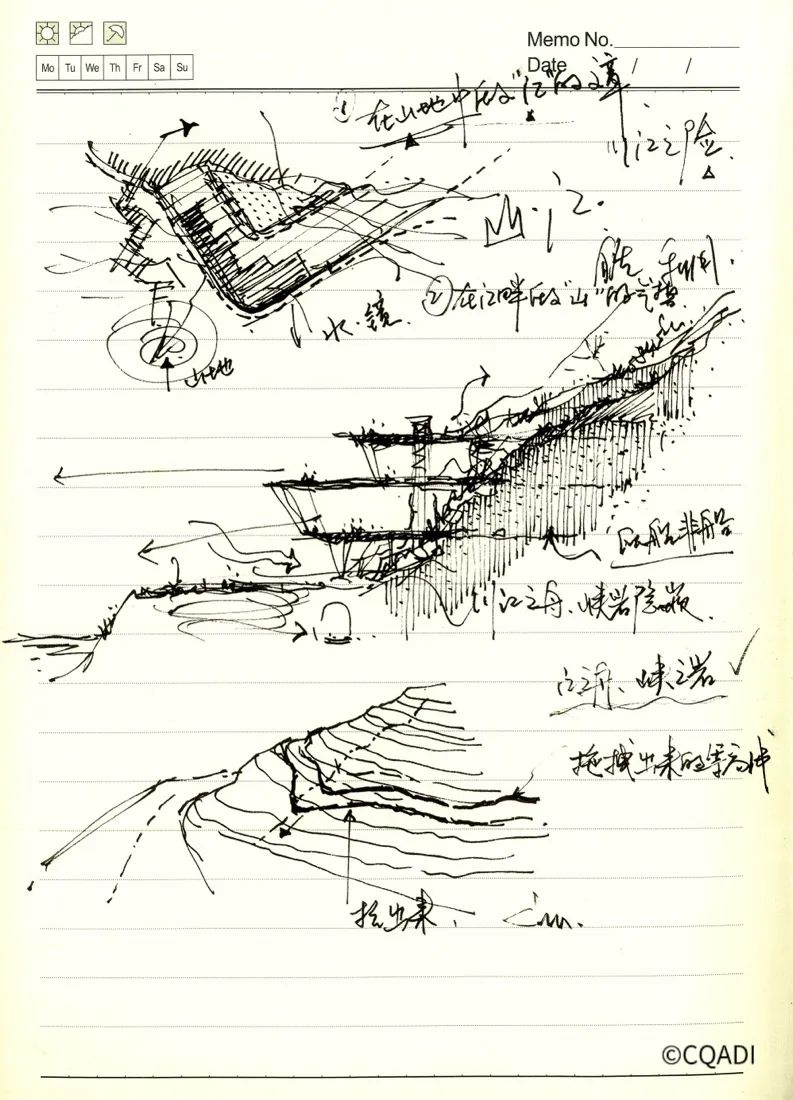 Memo No.
Mo Tu We Th Fr Sa Su
Date / /
① 在山地中的“江”的意
川江之险.
山·江.
②在江畔的“山”的气势
水·镜.
山地
似船非船
川江之舟、峡岩隐嵌.
江之舟、峡之岩
拖拽出来的等高线
拉出来.
©CQADI